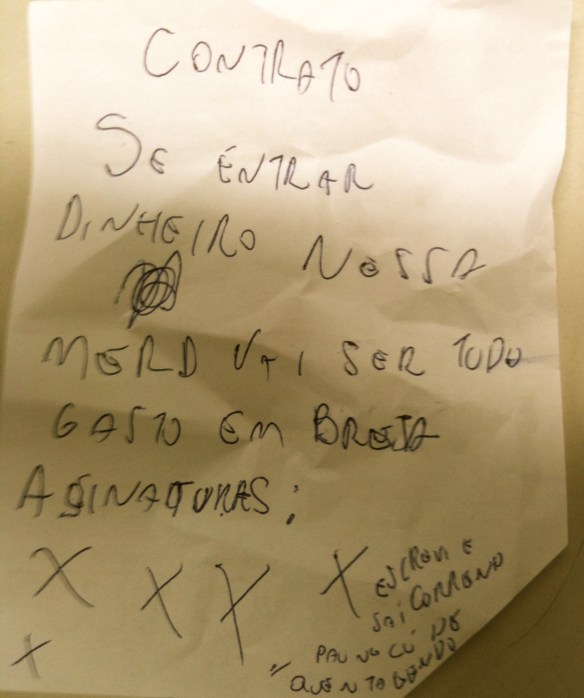 CONTRATO
SE ENTRAR
DINHEIRO NESSA
MERD VAI SER TODO
GASTO EM BREJA
ASINATURAS:
X X X X
X
ESCREVI E
SAI CORRENO
PAU NO CÚ DE
QUEN TA LENDO